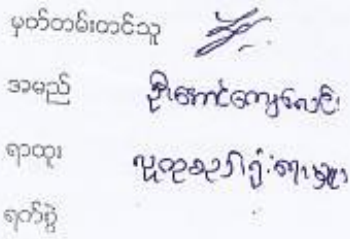 မှတ်တမ်းတင်သူ
အမည် ဦးအောင်ကျော်လင်း
ရာထူး လူထုစည်းရုံးရေးမှူး
ရက်စွဲ